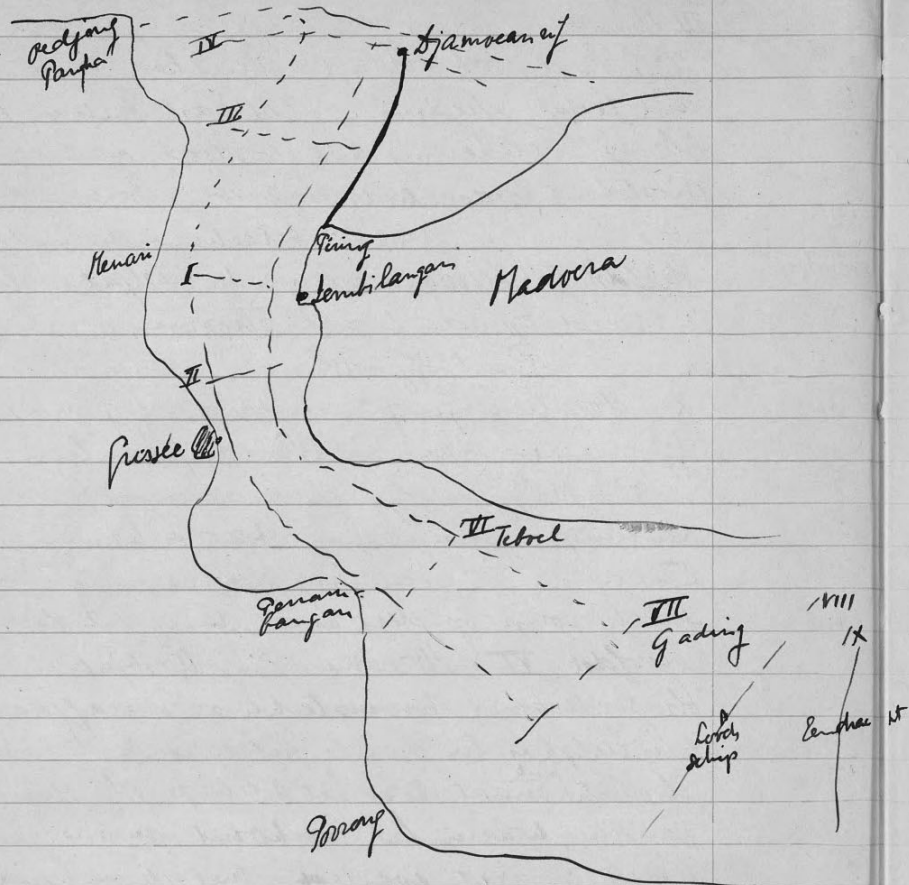 Oedjong
Pangka
IV
Djamoean rif
III
Menari
Piring
I
Sembilangan
Madoera
II
Grissée
VI Teboel
Penam-
bangan
VII
Gading
VIII
IX
Loods
schip
Eendracht
Porrong